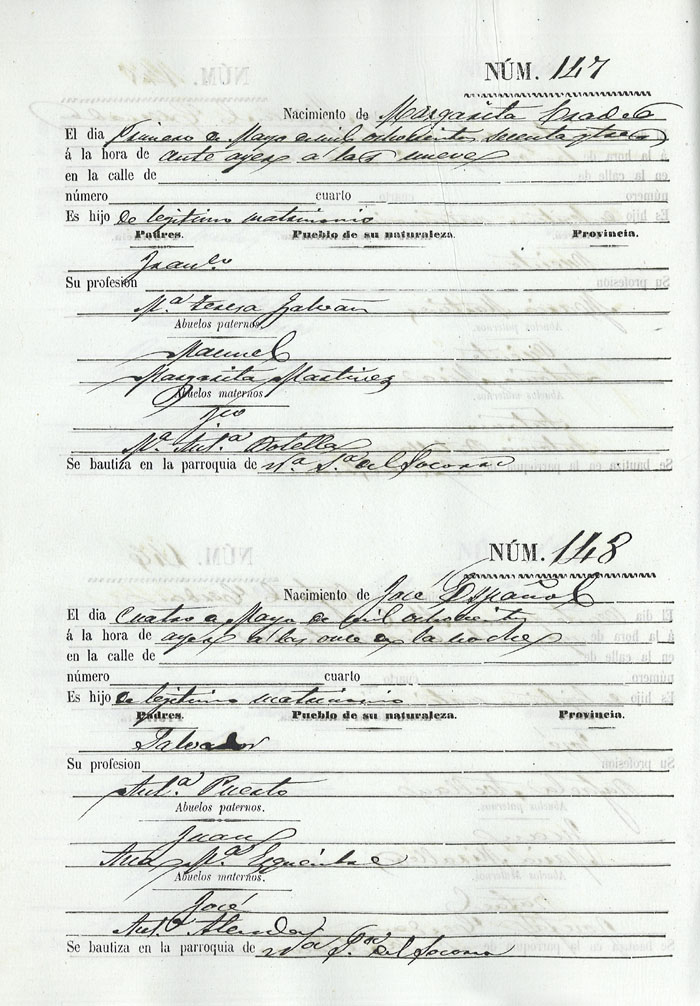 NÚM. 147
Nacimiento de Margarita Prades
El dia Primero de Mayo de mil ochocientos sesenta y tres
á la hora de ante ayer a las nueve
en la calle de
número cuarto
Es hijo de legitimo matrimonio
Padres. Pueblo de su naturaleza. Provincia.
Su profesion
Mª Teresa Galvañ
Abuelos paternos.
Manuel
Margarita Martinez
Abuelos maternos
Mª Antª Botella
Se bautiza en la parroquia de Nª Sª del Socorro
NÚM. 148
Nacimiento de Jose Español
El dia Cuatro de Mayo de mil ochocient
á la hora de ayer a las once de la noche
en la calle de
número cuarto
Es hijo de legitimo matrimonio
Padres. Pueblo de su naturaleza. Provincia.
Salvador
Su profesion
Antª Puerto
Abuelos paternos.
Juan
Ana Mª
Abuelos maternos.
José
Antª
Se bautiza en la parroquia de Nª Srª del Socorro